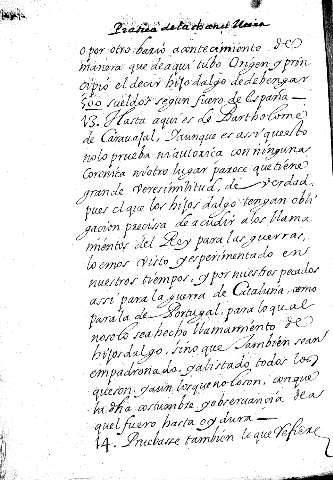 Pratica de la chancilleria
o por otro bario acontecimiento de
manera que de aqui tubo Origen y prin
cipió el decir hijodalgo de debengar
500 sueldos segun fuero de España
13. Hasta aqui es de Bartholome
de Carauajal, Aunque es assi que esto
nolo prueba ni autoriça con ninguna
Coronica ni otro lugar parece que tiene
grande verisimilitud, de verdad,
pues el que los hijos dalgo tengan obli
gación precissa de acudir a los llama
mientos del Rey para las guerras,
lo emos visto y esperimentado en
nuestros tiempos, y por nuestros pecados
assi para la guerra de Cataluña, como
para la de Portugal, para lo qual
no solo se a hecho llamamiento de
hijosdalgo, sino que tambien se an
empadronado, y alistado todos los
que son, y aun los que no loson, con que
la dha costumbre y obseruancia de a
quel fuero hasta oy dura
14. Pruebasse tambien lo que refiere